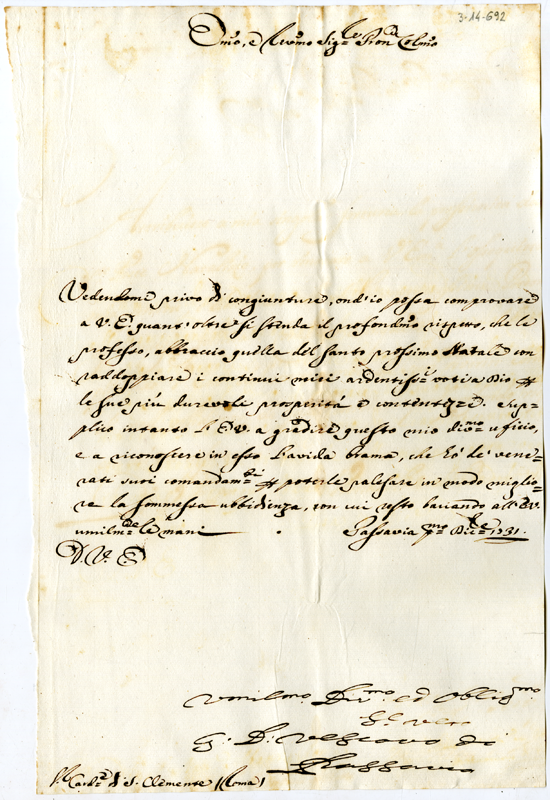 3-14-692
Em̃o, e Reŭmo Sig.re Pron Colm̃o
Vedendomi privo di congiunture, ond'io possa comprovare
a V. E. quant'oltre si stenda il profondm̃o rispetto, che le
professo, abbraccio quella del santo prossimo Natale con
raddoppiare i continui miei ardentiss.i voti a Dio p
le sue più durevole prosperità e contentezze. Sup=
plico intanto l'E.V. a gradire questo mio div.mo ufficio,
e a riconoscere in esso l'avida brama, che hò de' vene=
rati suoi comandam.ti p poterle palesare in modo miglio=
re la sommessa ubbidienza, con cui resto baciando all'E.V.
umilm.te le mani Passavia p.mo Dic.re 1731.
D. V. E.
Vmilmo. Div.mo ed Oblig.mo
Se. Vero
G. D. Vescovo di
Passavia
S.r Card.e di S. Clemente (Roma)